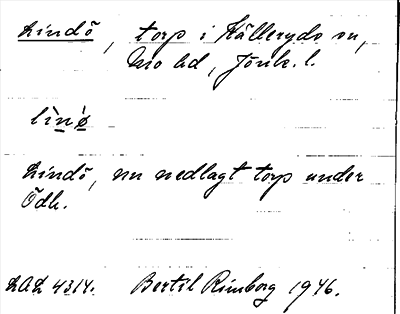 Lindö, torp i Källeryds sn,
Mo hd, Jönk. l.
li`nø̀
Lindö, nu nedlagt torp under
Ödh.
LAL 4314. Bertil Rimborg 1946.